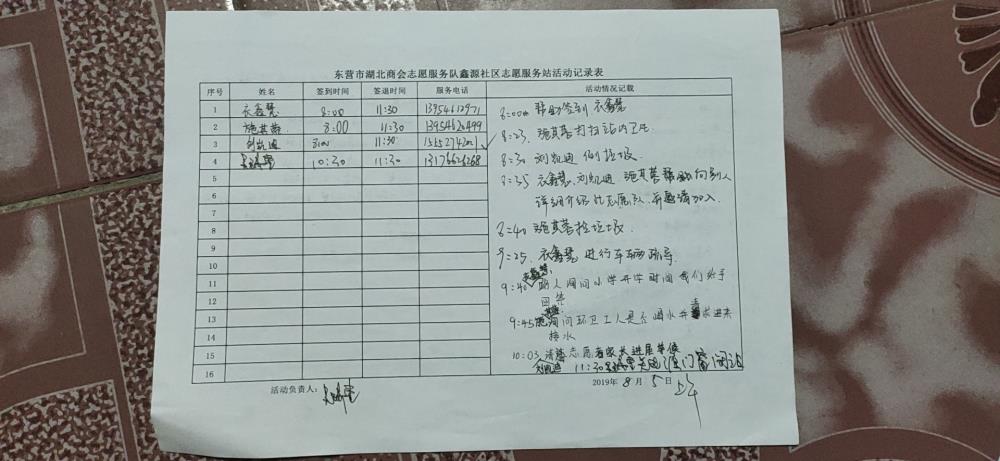 东营市湖北商会志愿服务队鑫源社区志愿服务站活动记录表
序号 姓名 签到时间 签退时间 服务电话 活动情况记载
1 衣鑫慧 8:00 11:30 13954612971
2 施其蓉 8:00 11:30
3 刘凯迪 11:30
4 10:30 11:30 13176626268
5
6
7
8
9
10
11
12
13
14
15
16
8:00 帮助签到 衣鑫慧
8:23 施其蓉打扫站内卫生
8:30 刘凯迪 倒垃圾
8:35 衣鑫慧、刘凯迪 施其蓉帮助向别人
详细介绍 志愿队,并邀请加入.
8:40 施其蓉捡垃圾.
9:25 衣鑫慧 进行车辆疏导
9:40 路人询问小学开学时间 我们给予
回答
9:45 询问环卫工人是否喝水并请求进来
接水
10:03 请志愿者家长进屋等候
刘凯迪 11:30 关 门窗闭站
活动负责人:
2019年 8 月 5 日 上午